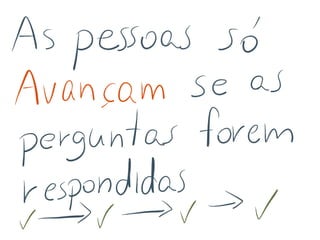 As pessoas só
Avançam se as
perguntas forem
respondidas
✓ → ✓ → ✓ → ✓